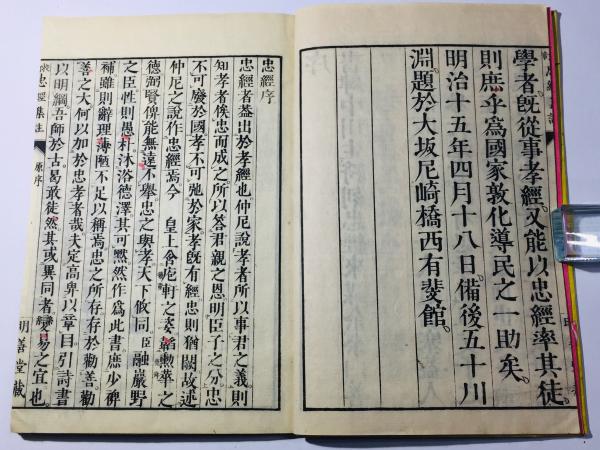 學者既從事孝經。又能以忠經率其徒。
則庶乎爲國家敦化導民之一助矣。
明治十五年四月十八日。備後五十川
淵題於大坂尼崎橋西有斐館。
忠經序
忠經者葢出於孝經也仲尼說孝者所以事君之義則
知孝者俟忠而成之所以答君親之恩明臣子之分忠
不可廢於國孝不可弛於家孝既有經忠則猶闕故述
仲尼之說作忠經焉今 皇上含庖軒之姿韞勲華之
德弼賢俾能無遠不舉忠之與孝天下攸同臣融巖野
之臣性則愚朴沐浴德澤其可默然作爲此書庶少裨
補雖則辭理薄陋不足以稱焉忠之所存存於勸善勸
善之大何以加於忠孝者哉夫定高卑以章目引詩書
以明綱吾師於古曷敢徒然其或異同者變易之宜也
忠經集註
原序
明善堂藏